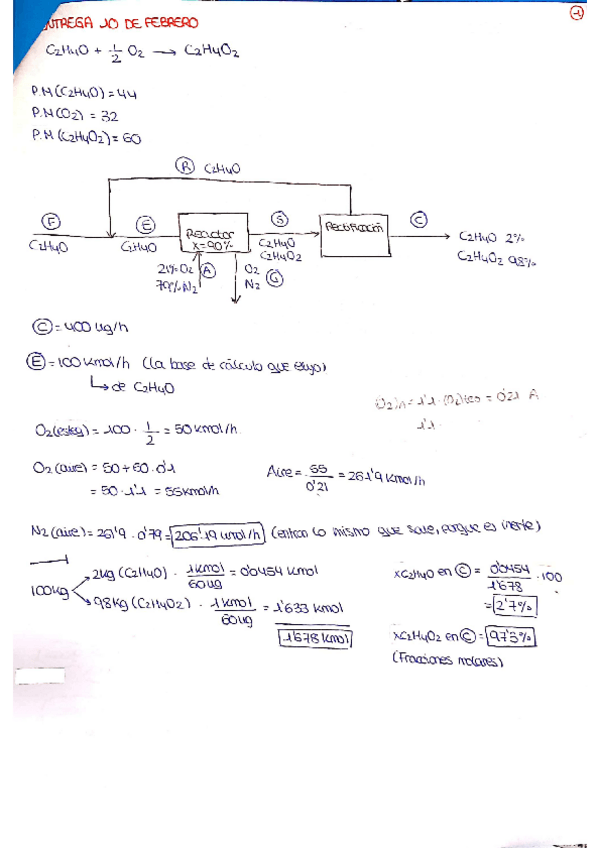 NTREGA 10 DE FEBRERO
1
C2H4O + 1/2 O2 → C2H4O2
P.M(C2H4O) = 44
P.M(O2) = 32
P.M(C2H4O2) = 60
R C2H4O
F E S C
Reactor
X=90%
Rectificación
C2H4O C2H4O C2H4O
C2H4O2
C2H4O 2%
C2H4O2 98%
21% O2 A O2
79% N2 N2 G
C = 400 kg/h
E = 100 Kmol/h (la base de cálculo que elijo)
↳ de C2H4O
O2)in = 1'1 · (O2)teo = 0'21 A
1'1
O2(esteq) = 100 · 1/2 = 50 kmol/h
O2(aire) = 50 + 60 · 0'1
= 50 · 1'1 = 55 kmol/h
Aire = 55/0'21 = 261'9 kmol/h
N2(aire) = 261'9 · 0'79 = 206'19 kmol/h (entra lo mismo que sale, porque es inerte)
100kg
2kg (C2H4O) · 1kmol/60kg = 0'0454 kmol
98kg (C2H4O2) · 1kmol/60kg = 1'633 kmol
1'678 kmol
xC2H4O en C = 0'0454/1'678 · 100
= 2'7%
xC2H4O2 en C = 97'3%
(Fracciones molares)